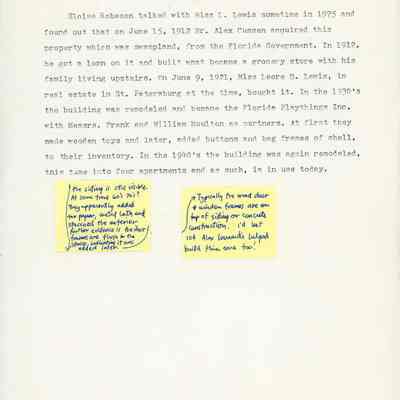 Eloise Robeson talked with Miss L. Lewis sometime in 1975 and
found out that on June 15, 1912 Mr. Alex acquired this
property which was swampland, from the Florida Government. In 1912,
he got a loan on it and built what became a grocery store with his
family living upstairs. On June 9, 1921, Miss Leora B. Lewis, in
real estate in St. Petersburg at the time, bought it. In the 1930's
the building was remodeled and became the Florida Playthings Inc.
with Messrs. Frank and William Moulton as partners. At first they
made wooden toys and later, added buttons and bag frames of shell,
to their inventory. In the 1940's the building was again remodeled,
this time into four apartments and as such, is in use today.
The siding is still visible
At some time 60's 70's?
They apparently added
tar paper, metal lath and
stuccoed the exterior
further evidence is the door
frames are flush to the
stucco, indicating it was
added later
Typically the wood door
& window frames are on
top of siding or concrete
construction. I'd bet
Alex
build this one too!